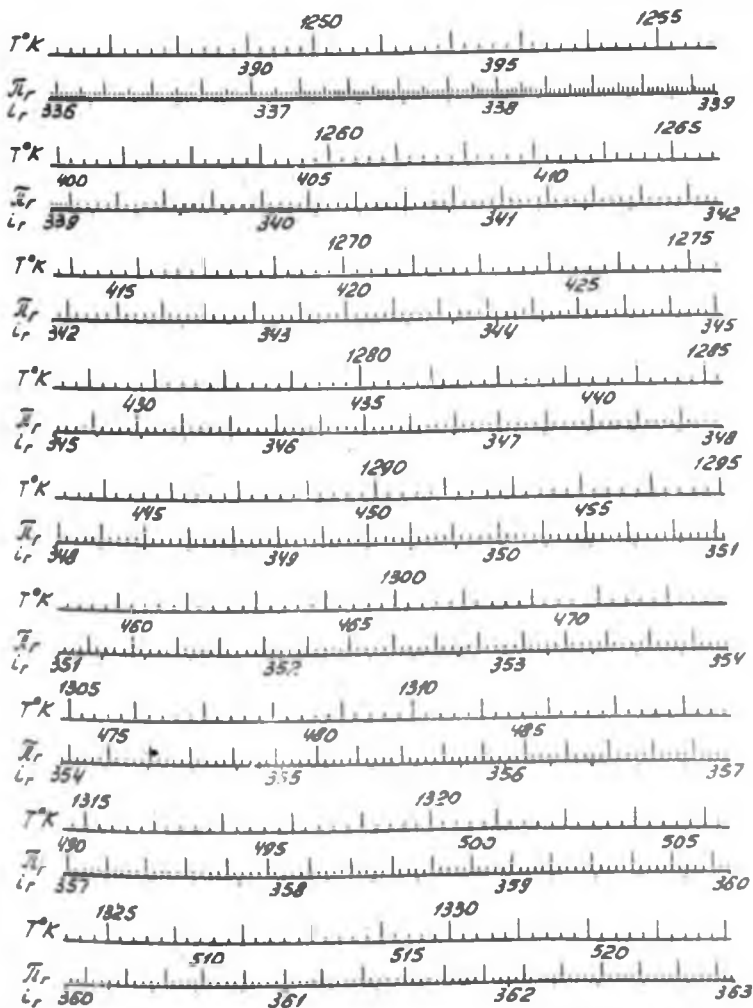 1250 1255
T°K
390 395
π̄r
ir 336 337 338 339
1260 1265
T°K
400 405 410
π̄r
ir 339 340 341 342
1270 1275
T°K
415 420 425
π̄r
ir 342 343 344 345
1280 1285
T°K
430 435 440
π̄r
ir 345 346 347 348
1290 1295
T°K
445 450 455
π̄r
ir 348 349 350 351
1300
T°K
460 465 470
π̄r
ir 351 352 353 354
1305 1310
T°K
475 480 485
π̄r
ir 354 355 356 357
1315 1320
T°K
490 495 500 505
π̄r
ir 357 358 359 360
1325 1330
T°K
510 515 520
π̄r
ir 360 361 362 363